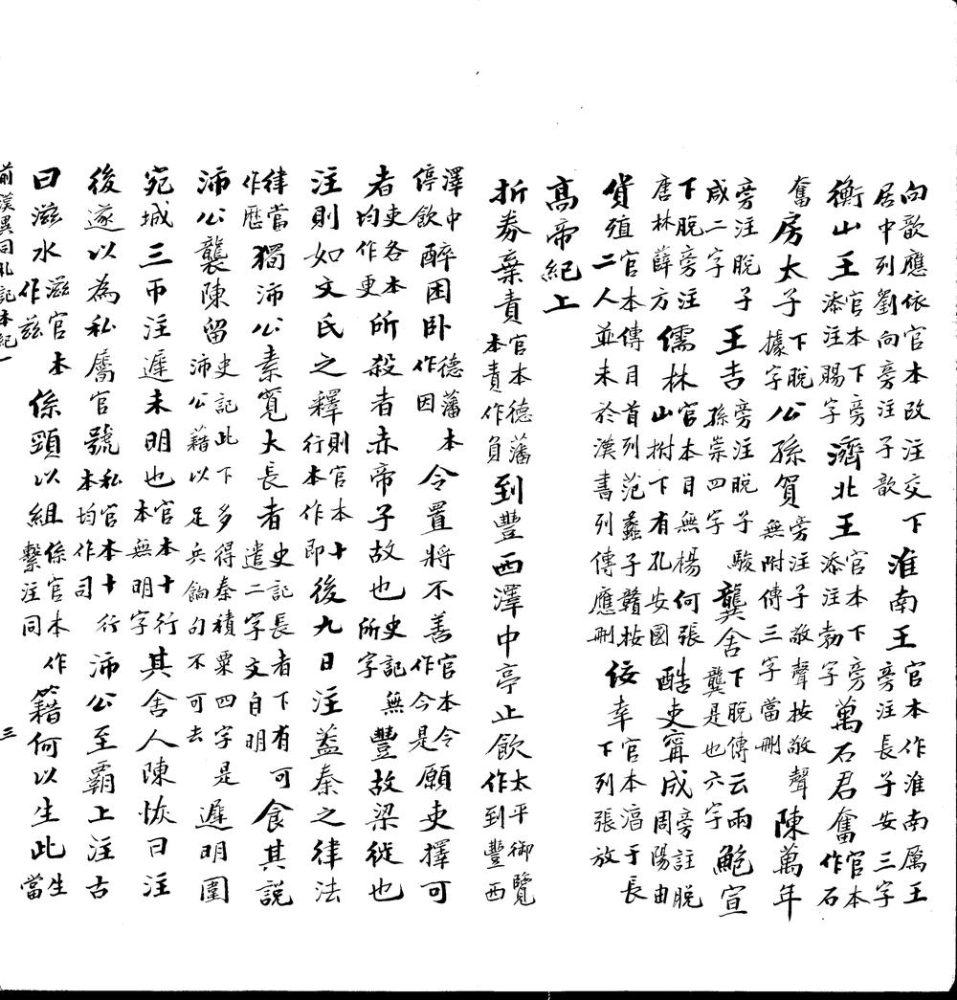 向歆應依官本改注交下淮南王官本作淮南厲王
居中列劉向旁注子歆旁注長子安三字
衡山王官本下旁添注賜字濟北王官本下旁添注勃字萬石君奮官本作石
奮房太子下脫據字公孫賀旁注子敬聲按敬聲無附傳三字當刪陳萬年
旁注脫子咸二字王吉旁注脫子駿孫崇四字龔舍下脫傳云兩龔是也六字鮑宣
下脫旁注唐林薛方儒林官本目無楊何張山拊下有孔安國酷吏甯成旁註脫周陽由
貨殖官本傳目首列范蠡子贛按二人並未於漢書列傳應刪佞幸官本滔于長下列張放
高帝紀上
折券棄責官本德藩本責作負到豐西澤中亭止飲太平御覽作到豐西
澤中停飲醉困臥德藩本作因令置將不善官本令作今是願吏擇可
者吏各本均作更所殺者赤帝子故也史記無所字豐故梁徙也
注則如文氏之釋則官本十行本作即後九日注蓋秦之律法
律當作歷獨沛公素寬大長者史記長者下有遣二字文自明可食其說
沛公襲陳留史記此下多得秦積粟四字是沛公藉以足兵餉句不可去遲明圍
宛城三帀注遲未明也官本十行本無明字其舍人陳恢曰注
後遂以為私屬官號私官本十行本均作司沛公至霸上注古
曰滋水滋官本作茲係頸以組係官本作繫注同籍何以生此生當
前漢異同札記本紀一 三